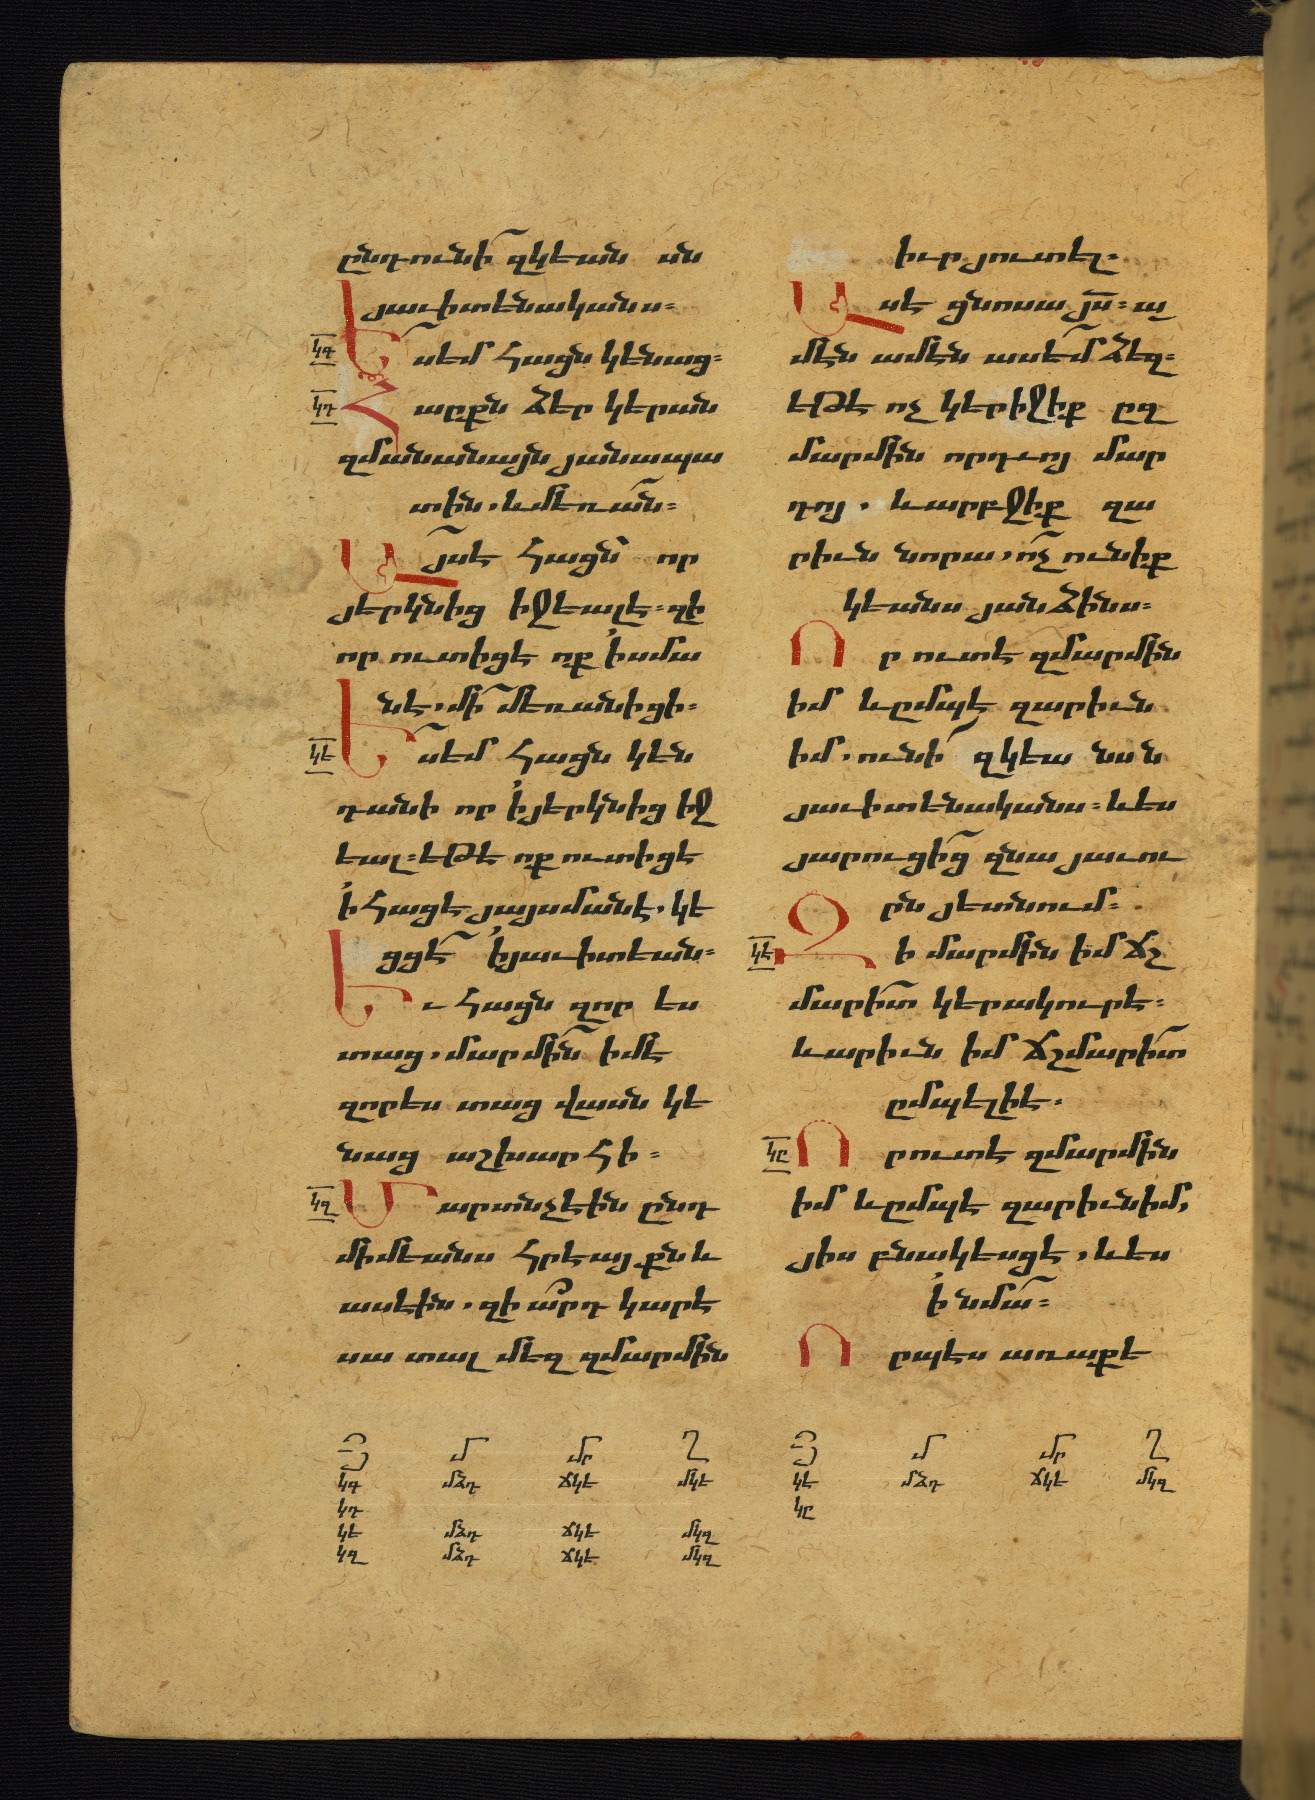 ընդունի զկեան սն
յաւիտենականս։
կգ Ես եմ հացն կենաց։
կդ Հարքն ձեր կերան
զմանանայն յանապա
տին, և մեռան։
Այս է հացն որ
յերկնից իջեալ է։ զի
որ ուտիցէ ոք ի սմա
նէ, մի մեռանիցի։
կե Ես եմ հացն կեն
դանի որ ի յերկնից իջ
եալ։ եթէ ոք ուտիցէ
ի հացէ յայսմանէ, կե
ցցէ ի յաւիտեան։
Եւ հացն զոր ես
տաց, մարմին իմ է
զոր ես տաց վասն կե
նաց աշխարհի։
կզ Մարտնչէին ընդ
միմեանս հրեայքն և
ասէին, զի՞արդ կարէ
սա տալ մեզ զմարմին
իւր յուտել։
Ասէ ցնոսա յս։ ա
մէն ամէն ասեմ ձեզ։
եթէ ոչ կերիջիք ըզ
մարմին որդւոյ մար
դոյ, և արբջիք զա
րիւն նորա, ոչ ունիք
կեանս յանձինս։
Որ ուտէ զմարմին
իմ և ըմպէ զարիւն
իմ, ունի զկեա նսն
յաւիտենականս։ և ես
յարուցից զնա յաւու
րն յետնում։
կէ Զի մարմին իմ ճշ
մարիտ կերակուր է։
և արիւն իմ ճշմարիտ
ըմպելի է։
կը Որ ուտէ զմարմին
իմ և ըմպէ զարիւն իմ,
յիս բնակեսցէ, և ես
ի նմա։
Որպէս առաքե
Յ մ մր Ղ
կգ մձդ ճկե մկե
կդ
կե մձդ ճկե մկզ
կզ մձդ ճկե մկզ
Յ մ մր Ղ
կէ մձդ ճկե մկզ
կը